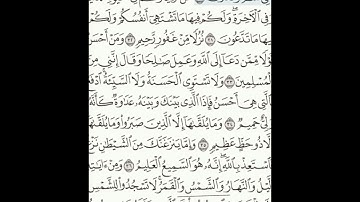 فِي ٱلْءَاخِرَةِ ۖ وَلَكُمْ فِيهَا مَا تَشْتَهِىٓ أَنفُسُكُمْ وَلَكُمْ
فِيهَا مَا تَدَّعُونَ ٣١ نُزُلًا مِّنْ غَفُورٍ رَّحِيمٍ ٣٢ وَمَنْ أَحْسَنُ
قَوْلًا مِّمَّن دَعَآ إِلَى ٱللَّهِ وَعَمِلَ صَٰلِحًا وَقَالَ إِنَّنِى مِنَ
ٱلْمُسْلِمِينَ ٣٣ وَلَا تَسْتَوِى ٱلْحَسَنَةُ وَلَا ٱلسَّيِّئَةُ ۚ ٱدْفَعْ
بِٱلَّتِى هِىَ أَحْسَنُ فَإِذَا ٱلَّذِى بَيْنَكَ وَبَيْنَهُۥ عَدَٰوَةٌ كَأَنَّهُۥ
وَلِىٌّ حَمِيمٌ ٣٤ وَمَا يُلَقَّىٰهَآ إِلَّا ٱلَّذِينَ صَبَرُوا۟ وَمَا يُلَقَّىٰهَآ
إِلَّا ذُو حَظٍّ عَظِيمٍ ٣٥ وَإِمَّا يَنزَغَنَّكَ مِنَ ٱلشَّيْطَٰنِ نَزْغٌ
فَٱسْتَعِذْ بِٱللَّهِ ۖ إِنَّهُۥ هُوَ ٱلسَّمِيعُ ٱلْعَلِيمُ ٣٦ وَمِنْ ءَايَٰتِهِ
ٱلَّيْلُ وَٱلنَّهَارُ وَٱلشَّمْسُ وَٱلْقَمَرُ ۚ لَا تَسْجُدُوا۟ لِلشَّمْسِ